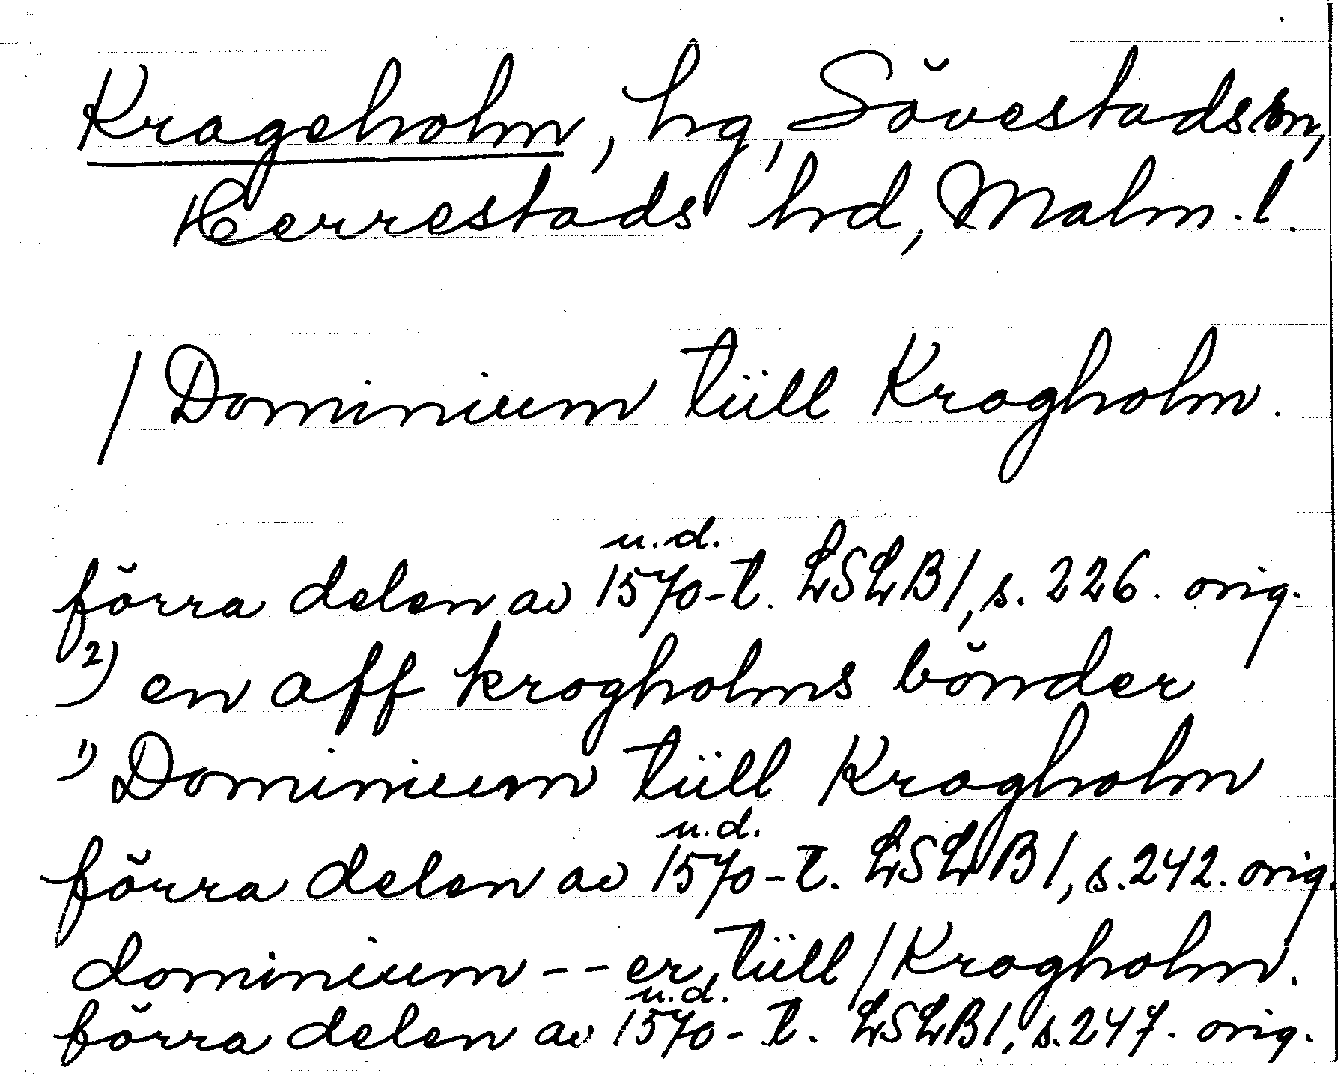 Krageholm, hg, Sövestads sn,
Herrestads hd, Malm. l.
/ Dominium tüll Kragholm.
u.d.
förra delen av 1570-t. LSLB1, s. 226. orig.
2) en aff krogholms bönder
1) Dominium tüll Kragholm
u.d.
förra delen av 1570-t. LSLB1, s. 242. orig.
dominium -- er tüll / Kragholm.
u.d.
förra delen av 1570-t. LSLB1, s. 247. orig.